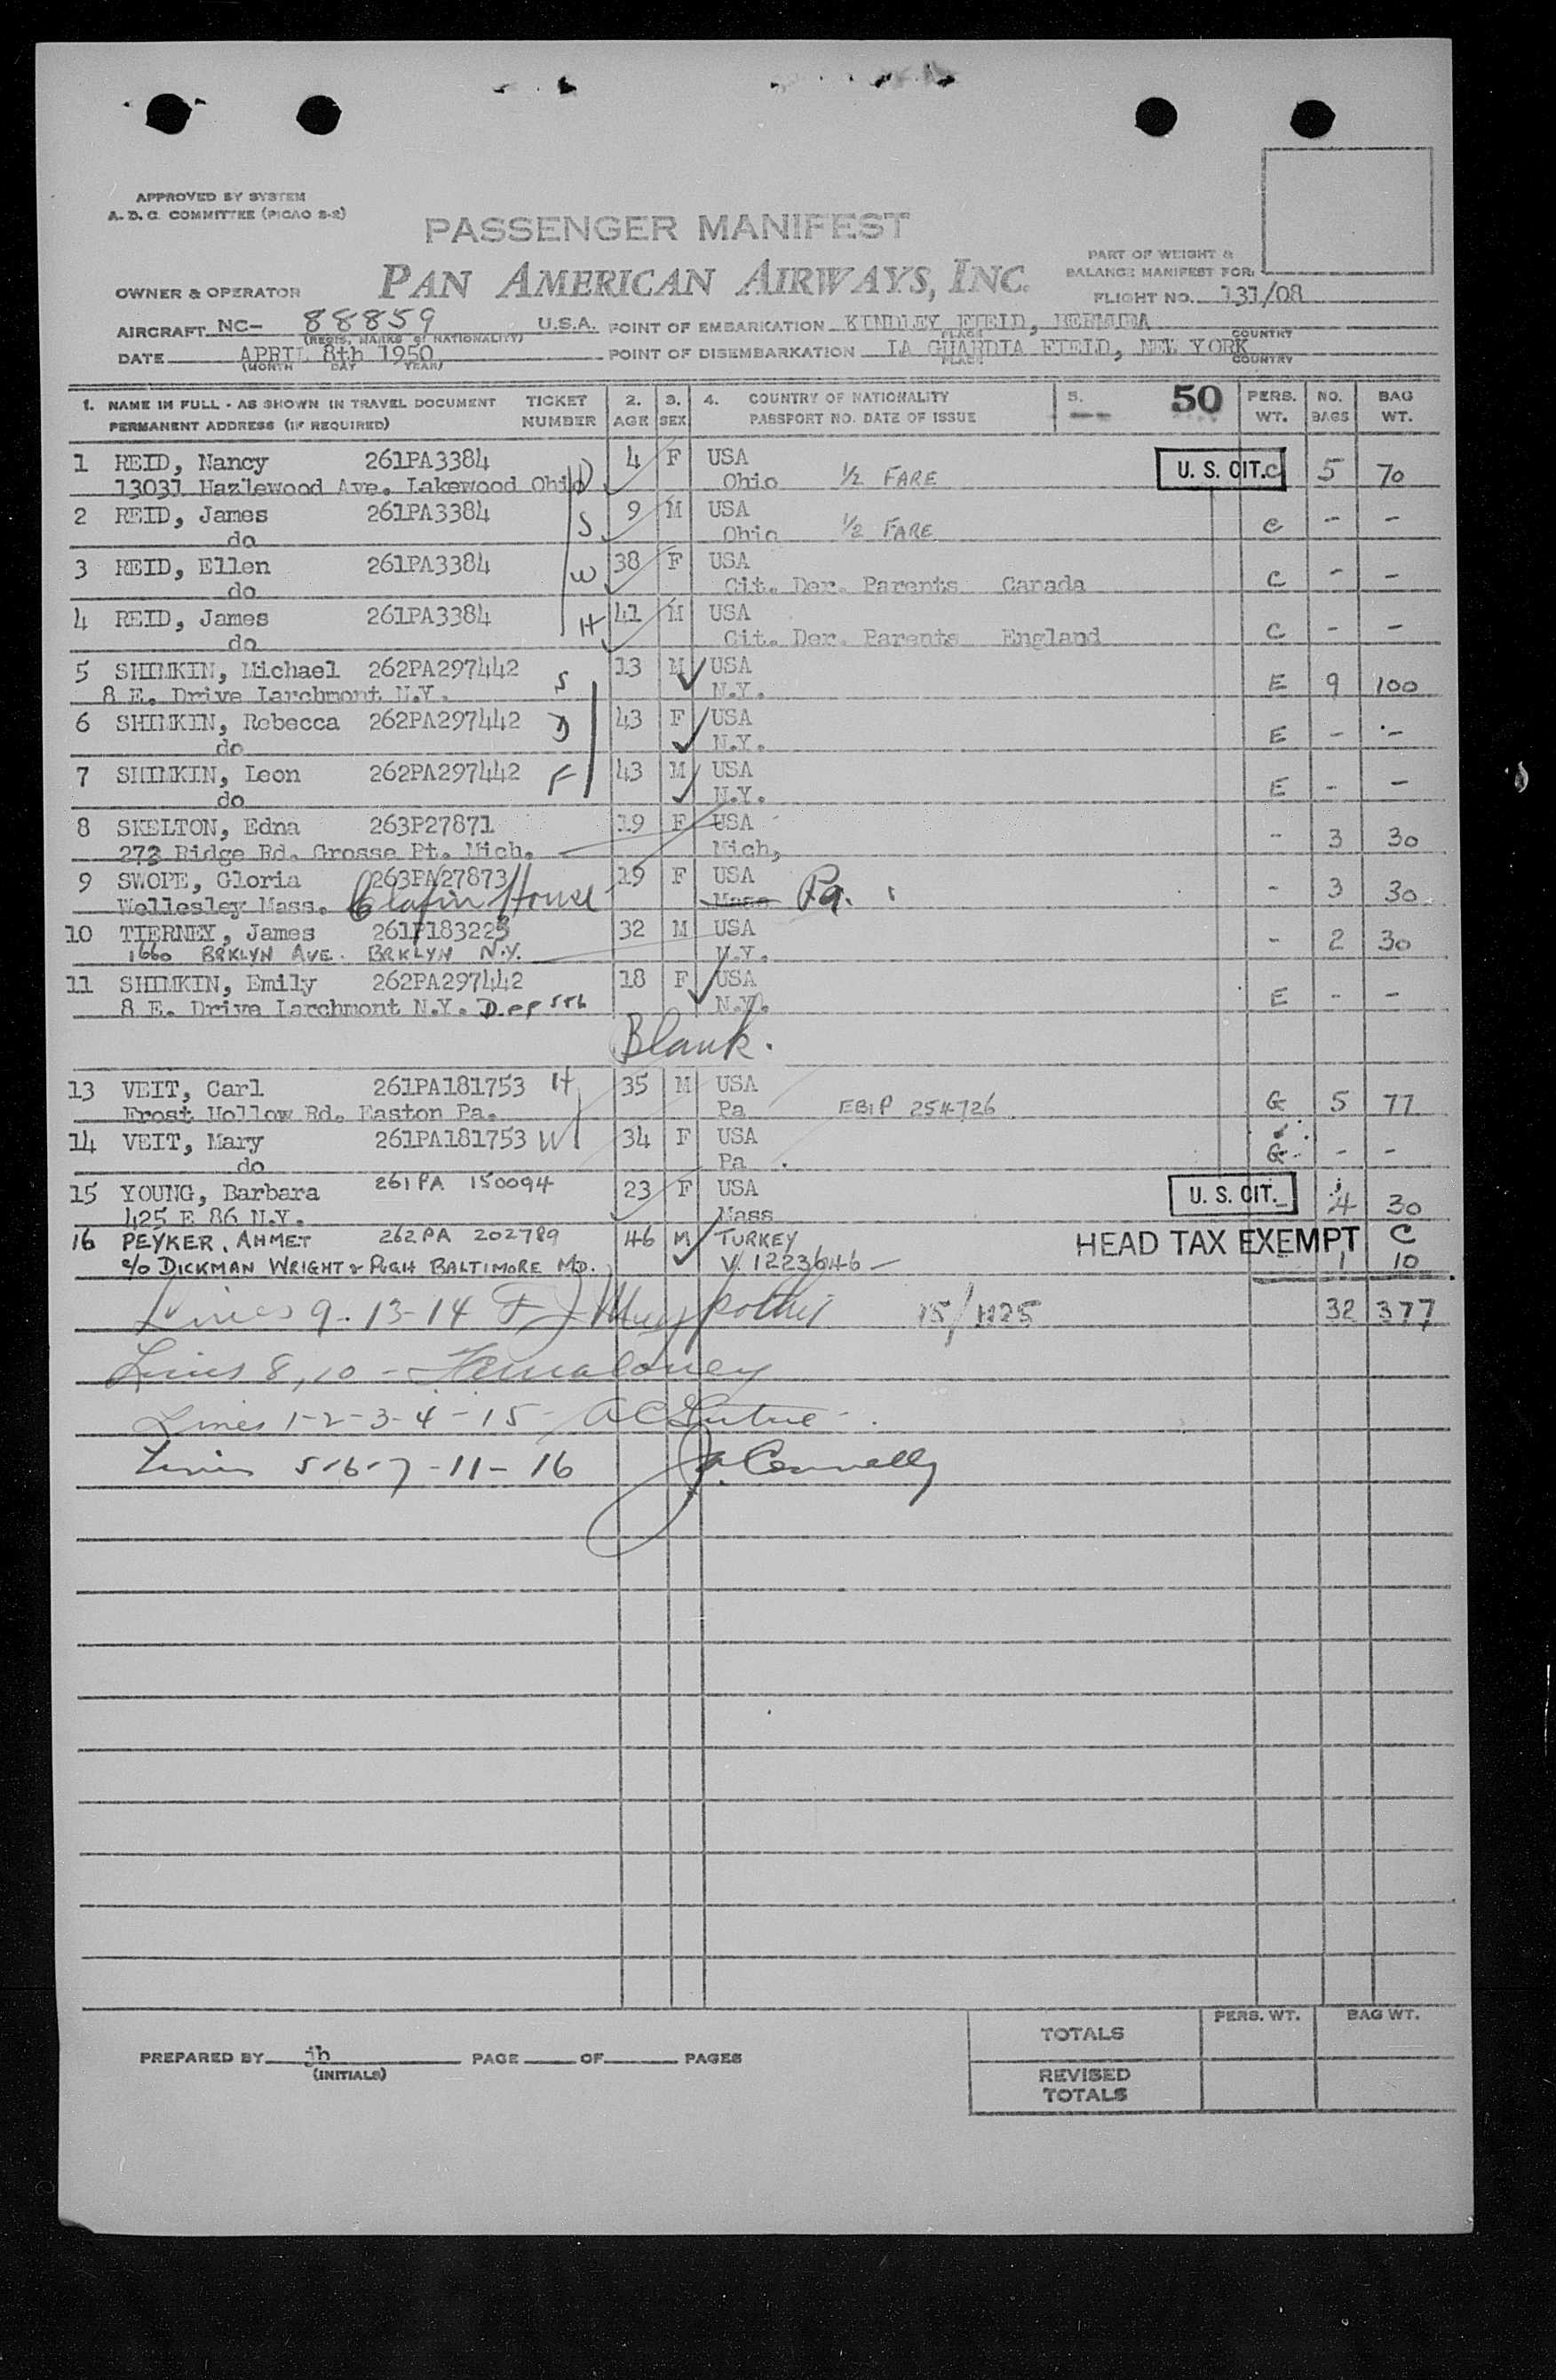 APPROVED BY SYSTEM
A. D. C. COMMITTEE (PICAO 2-2)
PASSENGER MANIFEST
PAN AMERICAN AIRWAYS, INC.
PART OF WEIGHT &
BALANCE MANIFEST FOR:
OWNER & OPERATOR
FLIGHT NO. 131/08
AIRCRAFT NC- 88859 U.S.A. POINT OF EMBARKATION KINDLEY FIELD, BERMUDA
(REGIS. MARKS & NATIONALITY) PLACE COUNTRY
DATE APRIL 8th 1950 POINT OF DISEMBARKATION LA GUARDIA FIELD, NEW YORK
(MONTH DAY YEAR) PLACE COUNTRY
1. NAME IN FULL - AS SHOWN IN TRAVEL DOCUMENT TICKET 2. 3. 4. COUNTRY OF NATIONALITY 5. 50 PERS. NO. BAG
PERMANENT ADDRESS (IF REQUIRED) NUMBER AGE SEX PASSPORT NO. DATE OF ISSUE WT. BAGS WT.
1 REID, Nancy 261PA3384 D 4 F USA U. S. CIT. C 5 70
13031 Hazlewood Ave. Lakewood Ohio Ohio ½ FARE
2 REID, James 261PA3384 S 9 M USA C - -
do Ohio ½ FARE
3 REID, Ellen 261PA3384 W 38 F USA C - -
do Cit. Der. Parents Canada
4 REID, James 261PA3384 H 41 M USA C - -
do Cit. Der. Parents England
5 SHIMKIN, Michael 262PA297442 S 13 M USA E 9 100
8 E. Drive Larchmont N.Y. N.Y.
6 SHIMKIN, Rebecca 262PA297442 D 43 F USA E - -
do N.Y.
7 SHIMKIN, Leon 262PA297442 F 43 M USA E - -
do N.Y.
8 SKELTON, Edna 263P27871 19 F USA - 3 30
273 Ridge Rd. Grosse Pt. Mich. Mich,
9 SWOPE, Gloria 263PA27873 19 F USA - 3 30
Wellesley Mass. Claflin House Mass Pa.
10 TIERNEY, James 261P183223 32 M USA - 2 30
1660 BRKLYN AVE. BRKLYN N.Y. N.Y.
11 SHIMKIN, Emily 262PA297442 18 F USA E - -
8 E. Drive Larchmont N.Y. Dep 5+6 N.Y.
Blank.
13 VEIT, Carl 261PA181753 H 35 M USA G 5 77
Frost Hollow Rd. Easton Pa. Pa EBIP 254726
14 VEIT, Mary 261PA181753 W 34 F USA G - -
do Pa
15 YOUNG, Barbara 261PA 150094 23 F USA U. S. CIT. - 4 30
425 E 86 N.Y. Mass
16 PEYKER, AHMET 262PA 202789 46 M TURKEY HEAD TAX EXEMPT C
c/o DICKMAN WRIGHT & PUGH BALTIMORE MD. V. 1223646 1 10
Lines 9-13-14 15/1125 32 377
Lines 8, 10 -
Lines 1-2-3-4-15-
Lines 5-6-7-11-16 Connelly
PREPARED BY jh PAGE OF PAGES
(INITIALS)
PERS. WT. BAG WT.
TOTALS
REVISED
TOTALS